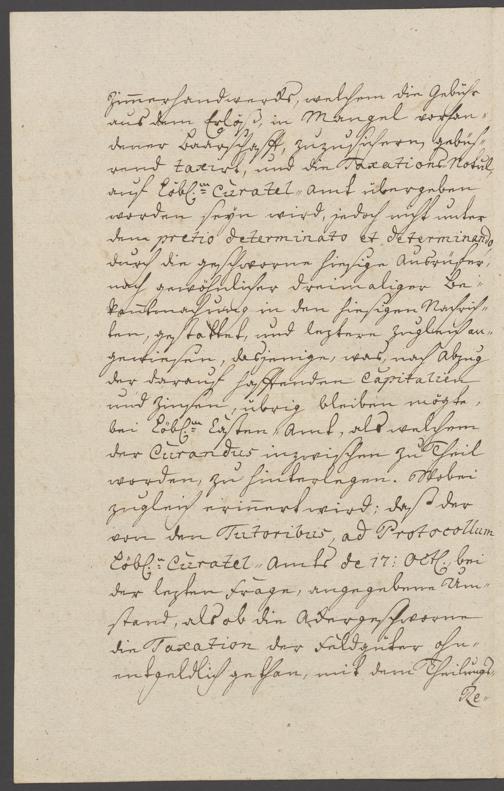 Zimmerhandwercks, welchem die Gebühr
aus dem Erlöß, in Mangel vorhan-
dener Baarschafft, zuzusichern, gebüh-
rend taxirt, und die Taxations Notul,
auf Löbl:n Curatel-Amt übergeben
worden seyn wird, jedoch nicht unter
dem pretio determinato et determinando
durch die geschworne hiesige Ausrüfer,
nach gewöhnlicher dreimaliger Be-
kanntmachung in den hiesigen Nachrich-
ten, gestattet, und leztere zugleich an-
gewiesen, dasjenige, was nach Abzug
der darauf hafftenden Capitalien
und Zinsen, übrig bleiben mögte,
bei Löbl:m Casten Amt, als welchem
der Curandus inzwischen zu Theil
worden, zu hinterlegen. Wobei
zugleich erinnert wird: daß der
von den Tutoribus, ad Protocollum
Löbl:n Curatel-Amts de 17: Octl., bei
der lezten Frage, angegebene Um-
stand, als ob die Ackergeschworne
die Taxation der Feldgüter ohn-
entgeldlich gethan, mit dem Theilungs-
Re-